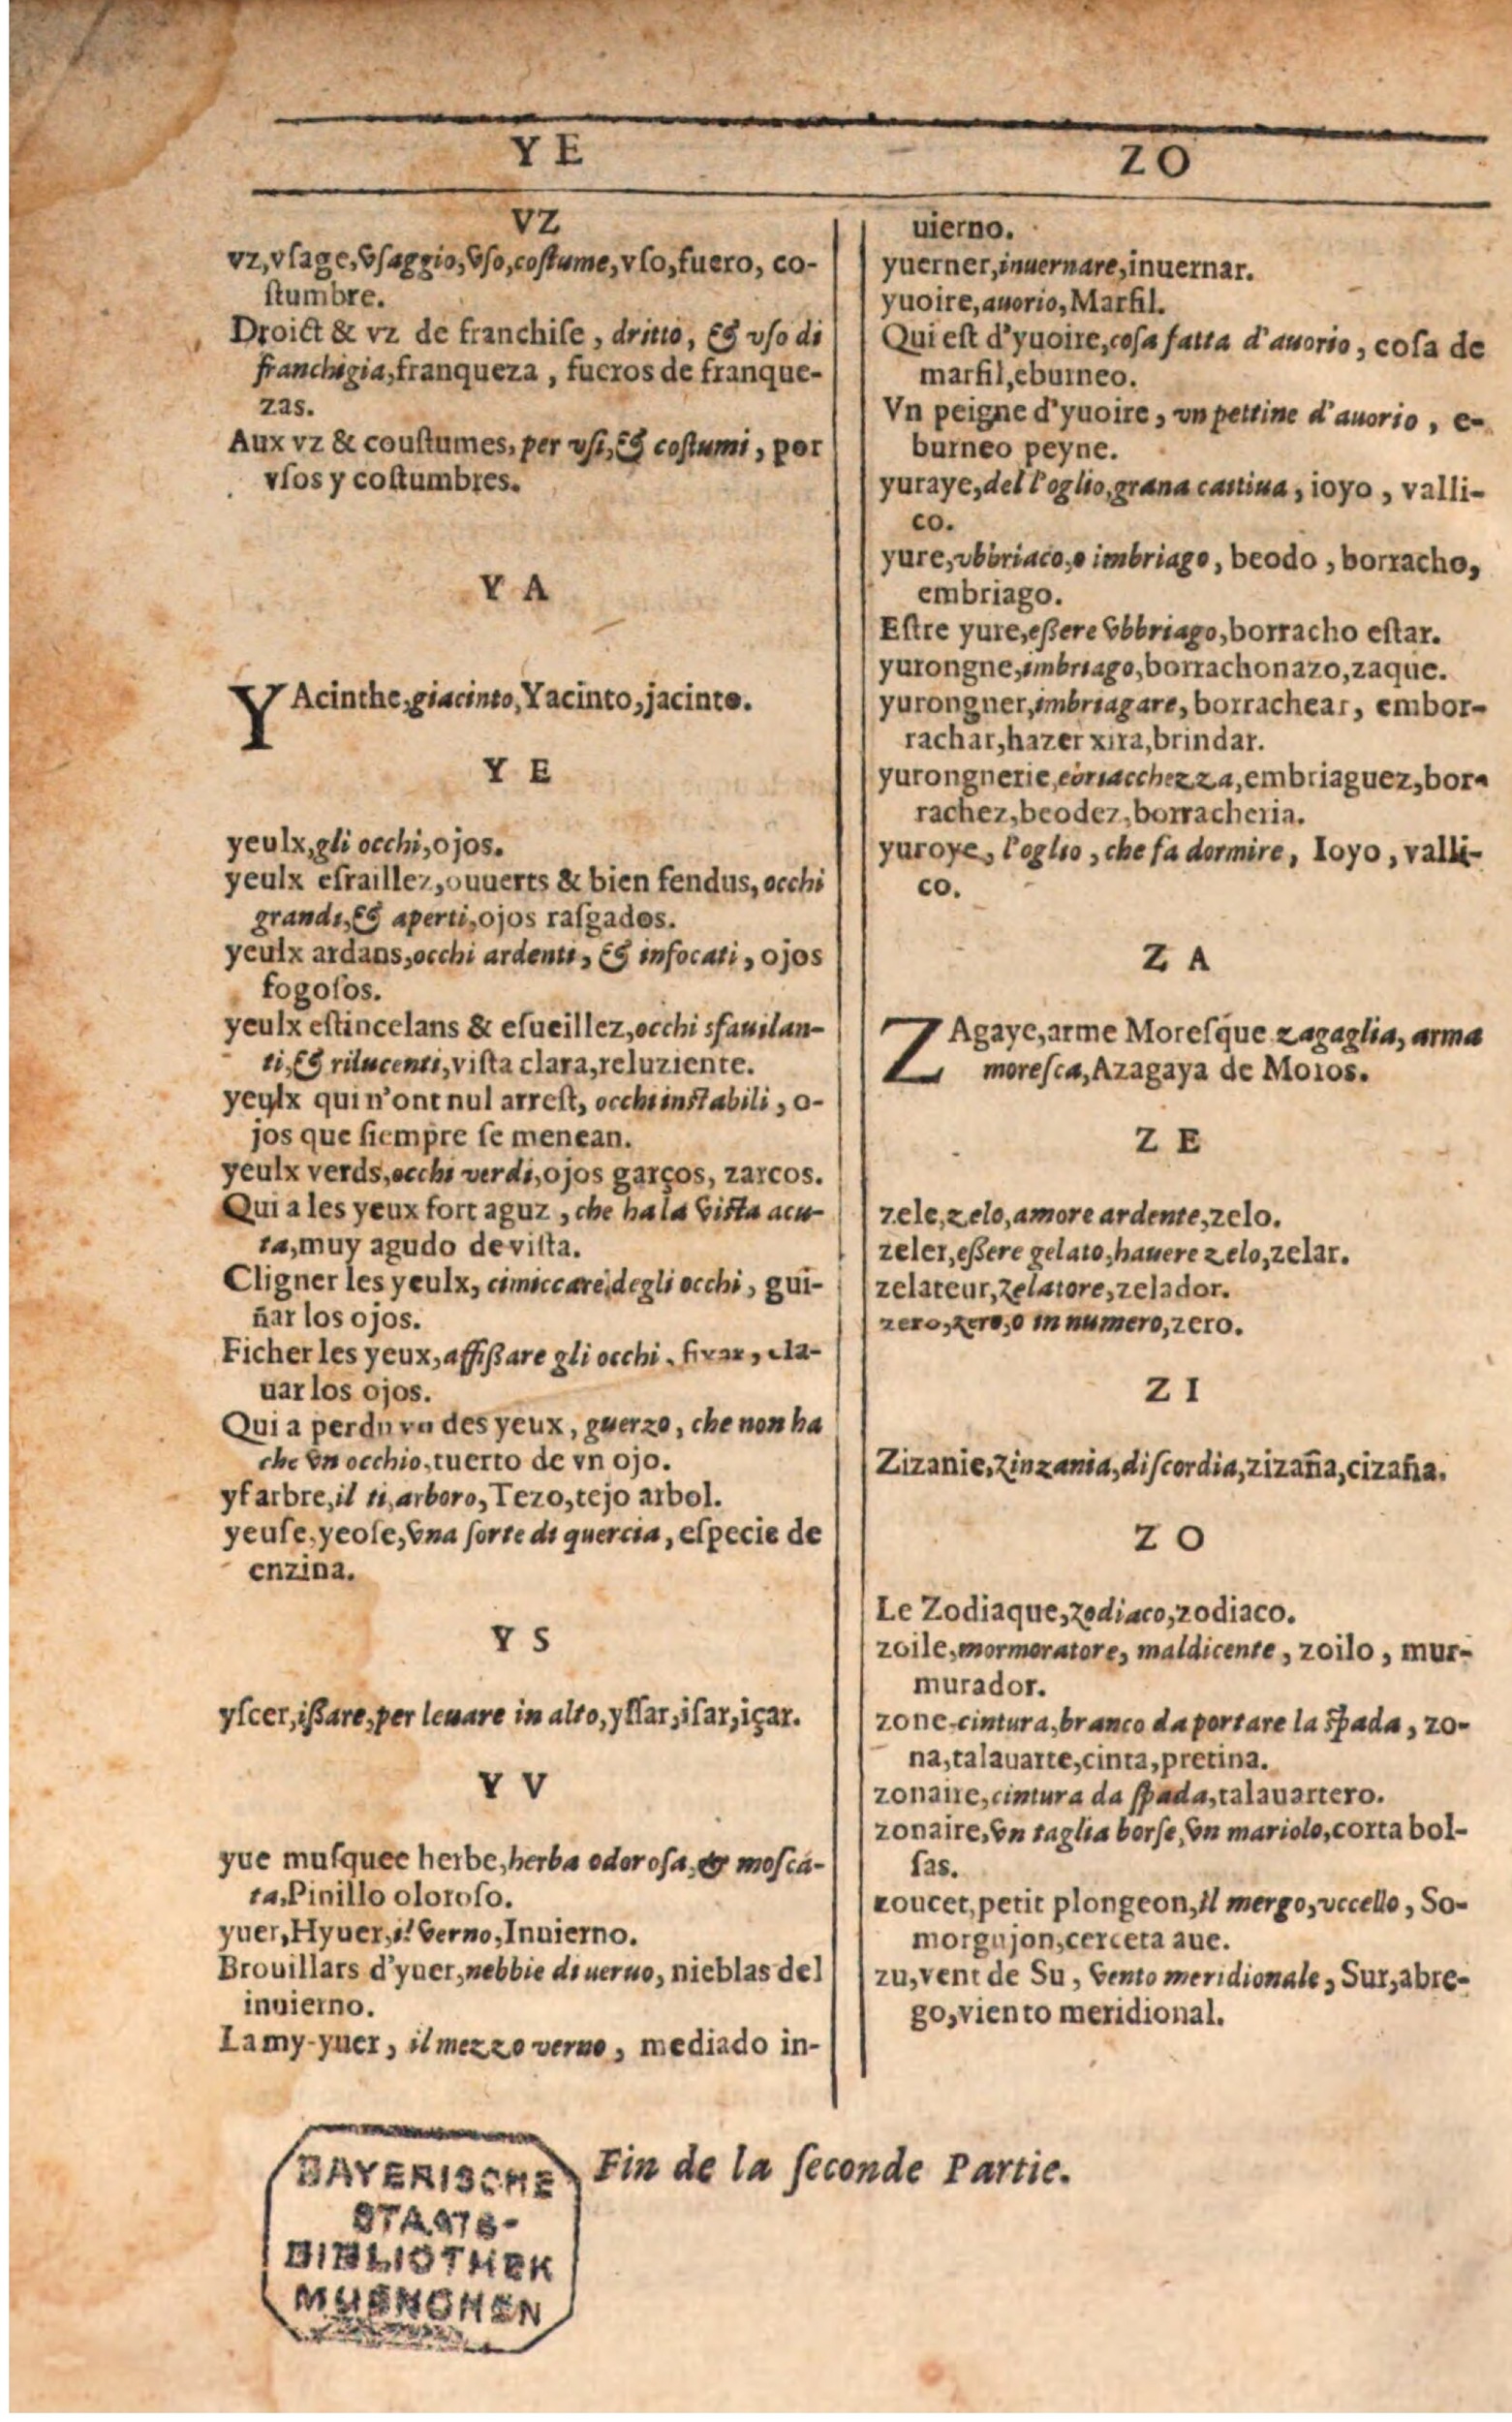 YE
ZO
VZ
vz,vſage,vſaggio,vſo,coſtume,vſo,fuero, co-
ſtumbre.
Droict & vz de franchiſe, dritto, & vſo di
franchigia,franqueza, fueros de franque-
zas.
Aux vz & couſtumes, per vſi,& coſtumi, por
vſos y coſtumbres.
Y A
YAcinthe,giacinto,Yacinto,jacinto.
Y E
yeulx,gli occhi,ojos.
yeulx eſraillez,ouuerts & bien fendus, occhi
grandi,& aperti,ojos raſgados.
yeulx ardans,occhi ardenti, & infocati, ojos
fogoſos.
yeulx eſtincelans & eſueillez,occhi sfauilan-
ti,& rilucenti,viſta clara,reluziente.
yeulx qui n'ont nul arreſt, occhi inſtabili, o-
jos que ſiempre ſe menean.
yeulx verds,occhi verdi,ojos garços, zarcos.
Qui a les yeux fort aguz, che ha la viſta acu-
ta,muy agudo de viſta.
Cligner les yeulx, cimiccare degli occhi, gui-
ñar los ojos.
Ficher les yeux,affiſſare gli occhi, fixar, cla-
uar los ojos.
Qui a perdu vn des yeux, guerzo, che non ha
che vn occhio,tuerto de vn ojo.
yf arbre,il ti,arboro,Tezo,tejo arbol.
yeuſe,yeoſe,vna ſorte di quercia, eſpecie de
enzina.
Y S
yſcer,iſſare,per leuare in alto,yſſar,iſar,içar.
Y V
yue muſquee herbe,herba odoroſa,& moſca-
ta,Pinillo oloroſo.
yuer,Hyuer,il verno,Inuierno.
Brouillars d'yuer,nebbie di uerno, nieblas del
inuierno.
La my-yuer, il mezzo verno, mediado in-
uierno.
yuerner,inuernare,inuernar.
yuoire,auorio,Marfil.
Qui eſt d'yuoire,coſa fatta d'auorio, coſa de
marfil,eburneo.
Vn peigne d'yuoire, vn pettine d'auorio, e-
burneo peyne.
yuraye,del l'oglio,grana cattiua, ioyo, valli-
co.
yure,vbbriaco,o imbriago, beodo, borracho,
embriago.
Eſtre yure,eſſere vbbriago,borracho eſtar.
yurongne,imbriago,borrachonazo,zaque.
yurongner,imbriagare, borrachear, embor-
rachar,hazer xira,brindar.
yurongnerie,ebriacchezza,embriaguez,bor-
rachez,beodez,borracheria.
yuroye, l'oglio, che fa dormire, Ioyo, valli-
co.
Z A
ZAgaye,arme Moreſque zagaglia, arma
moreſca,Azagaya de Moros.
Z E
zele,zelo,amore ardente,zelo.
zeler,eſſere gelato,hauere zelo,zelar.
zelateur,zelatore,zelador.
zero,zero,o in numero,zero.
Z I
Zizanie,zinzania,diſcordia,zizaña,cizaña.
Z O
Le Zodiaque,zodiaco,zodiaco.
zoile,mormoratore, maldicente, zoilo, mur-
murador.
zone,cintura,branco da portare la ſpada, zo-
na,talauarte,cinta,pretina.
zonaire,cintura da ſpada,talauartero.
zonaire,vn taglia borſe,vn mariolo,corta bol-
ſas.
zoucet,petit plongeon,il mergo,vccello, So-
morgujon,cerceta aue.
zu,vent de Su, vento meridionale, Sur,abre-
go,viento meridional.
Fin de la ſeconde Partie.
BAYERISCHE
STAATS-
BIBLIOTHEK
MUENCHEN